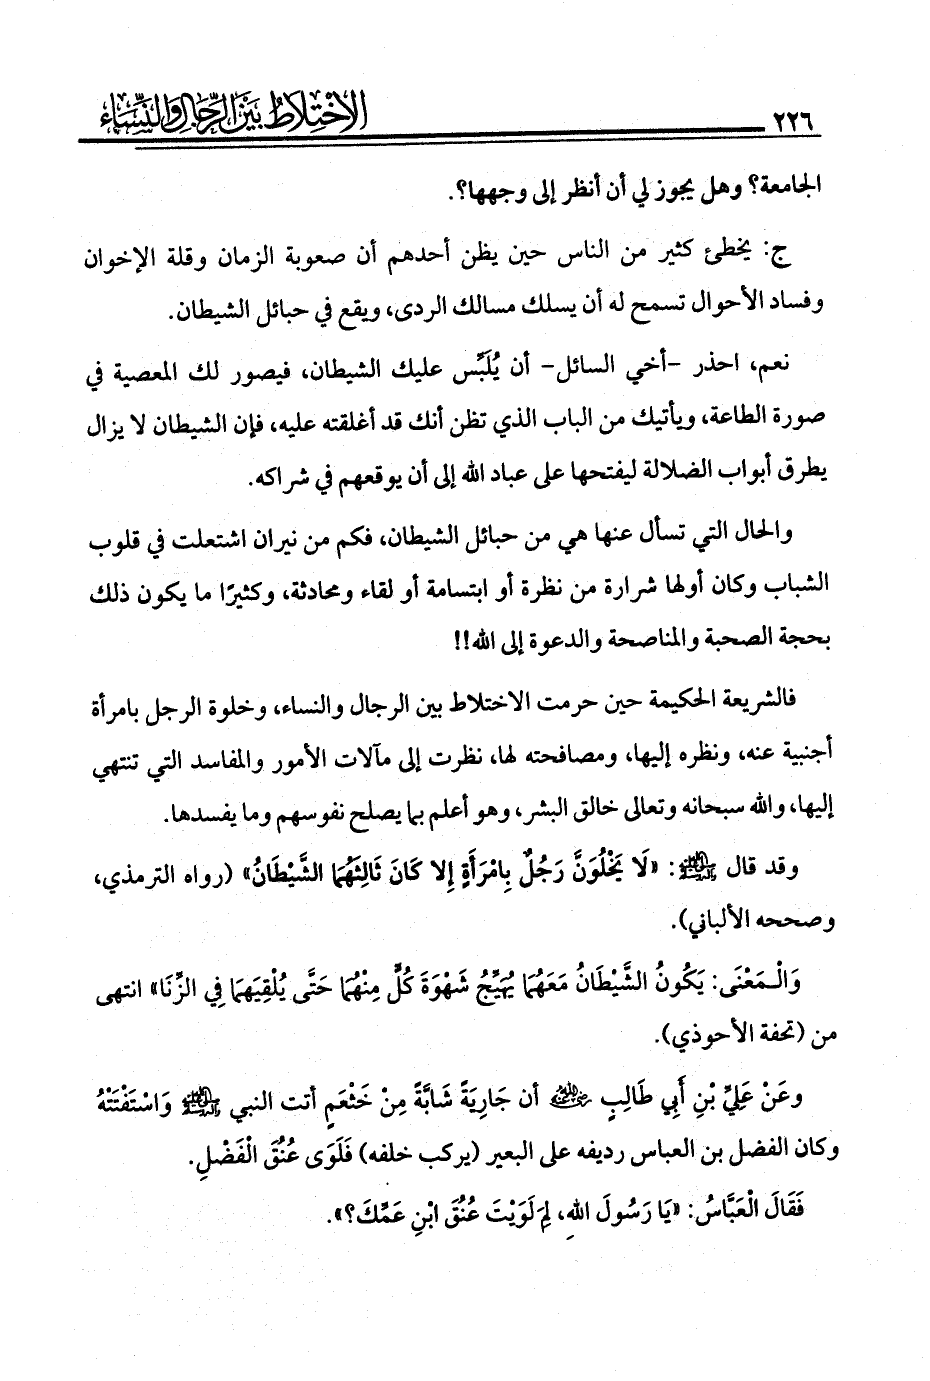 ٢٢٦ الاختلاط بين الرجال والنساء
الجامعة؟ وهل يجوز لي أن أنظر إلى وجهها؟.
ج: يخطئ كثير من الناس حين يظن أحدهم أن صعوبة الزمان وقلة الإخوان
وفساد الأحوال تسمح له أن يسلك مسالك الردى، ويقع في حبائل الشيطان.
نعم، احذر -أخي السائل- أن يُلَبِّس عليك الشيطان، فيصور لك المعصية في
صورة الطاعة، ويأتيك من الباب الذي تظن أنك قد أغلقته عليه، فإن الشيطان لا يزال
يطرق أبواب الضلالة ليفتحها على عباد الله إلى أن يوقعهم في شراكه.
والحال التي تسأل عنها هي من حبائل الشيطان، فكم من نيران اشتعلت في قلوب
الشباب وكان أولها شرارة من نظرة أو ابتسامة أو لقاء ومحادثة، وكثيرًا ما يكون ذلك
بحجة الصحبة والمناصحة والدعوة إلى الله!!
فالشريعة الحكيمة حين حرمت الاختلاط بين الرجال والنساء، وخلوة الرجل بامرأة
أجنبية عنه، ونظره إليها، ومصافحته لها، نظرت إلى مآلات الأمور والمفاسد التي تنتهي
إليها، والله سبحانه وتعالى خالق البشر، وهو أعلم بما يصلح نفوسهم وما يفسدها.
وقد قال ﷺ: «لَا يَخْلُوَنَّ رَجُلٌ بِامْرَأَةٍ إِلا كَانَ ثَالِثَهُمَا الشَّيْطَانُ» (رواه الترمذي،
وصححه الألباني).
وَالْـمَعْنَى: يَكُونُ الشَّيْطَانُ مَعَهُمَا يُهَيِّجُ شَهْوَةَ كُلٍّ مِنْهُمَا حَتَّى يُلْقِيَهُمَا فِي الزِّنَا» انتهى
من (تحفة الأحوذي).
وعَنْ عَلِيِّ بْنِ أَبِي طَالِبٍ رضي الله عنه أن جَارِيَةً شَابَّةً مِنْ خَثْعَمٍ أتت النبي ﷺ وَاسْتَفْتَتْهُ
وكان الفضل بن العباس رديفه على البعير (يركب خلفه) فَلَوَى عُنُقَ الْفَضْلِ.
فَقَالَ الْعَبَّاسُ: «يَا رَسُولَ اللهِ، لِمَ لَوَيْتَ عُنُقَ ابْنِ عَمِّكَ؟».